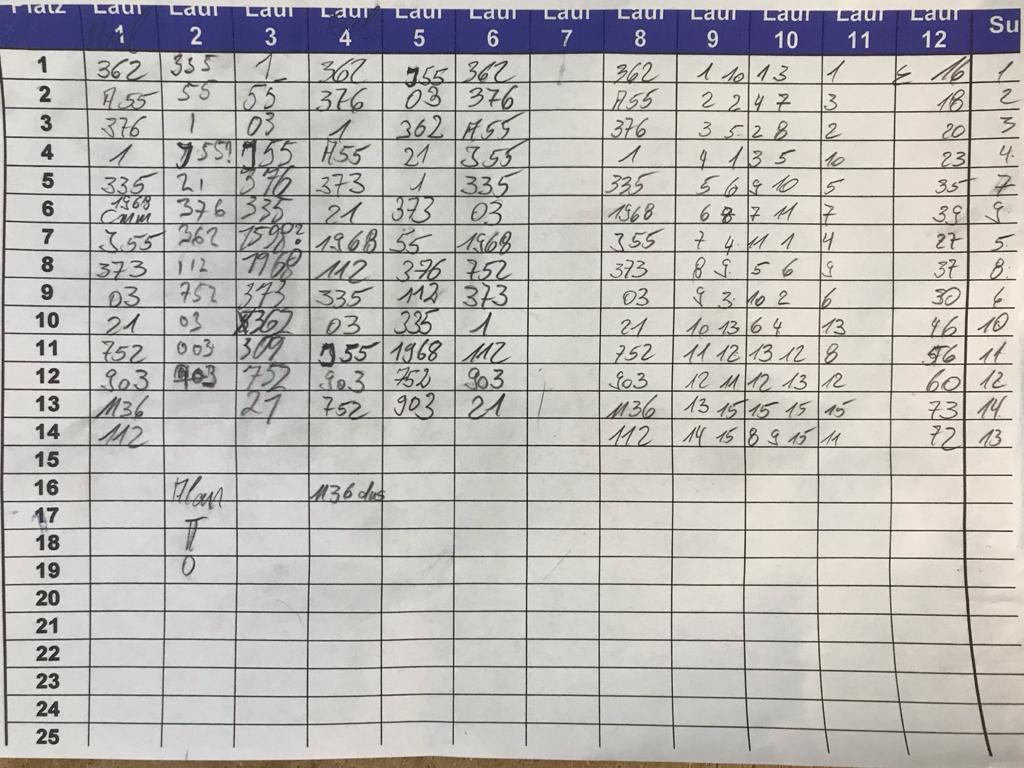 Platz Lauf Lauf Lauf Lauf Lauf Lauf Lauf Lauf Lauf Lauf Lauf Lauf Su
1 2 3 4 5 6 7 8 9 10 11 12
1 362 355 1 362 J55 362 362 1 10 1 3 1 Σ 16 1
2 A55 55 55 376 03 376 A55 2 2 4 7 3 18 2
3 376 1 03 1 362 A55 376 3 5 2 8 2 20 3
4 1 J55? J55 A55 21 355 1 4 1 3 5 10 23 4.
5 335 21 376 373 1 335 335 5 6 9 10 5 35 7
6 1968 376 335 21 373 03 1968 6 8 7 11 7 39 9
7 355 362 1598? 1968 55 1968 355 7 4 11 1 4 27 5.
8 373 112 1968 112 376 752 373 8 9 5 6 9 37 8.
9 03 752 373 335 112 373 03 9 3 10 2 6 30 6
10 21 03 362 03 335 1 21 10 13 6 4 13 46 10
11 752 003 309 J55 1968 112 752 11 12 13 12 8 56 11
12 903 903 752 903 752 903 903 12 11 12 13 12 60 12
13 1136 21 752 903 21 1136 13 15 15 15 15 73 14
14 112 112 14 15 8 9 15 11 72 13
15
16 1136 dns
17
18 II
19 0
20
21
22
23
24
25